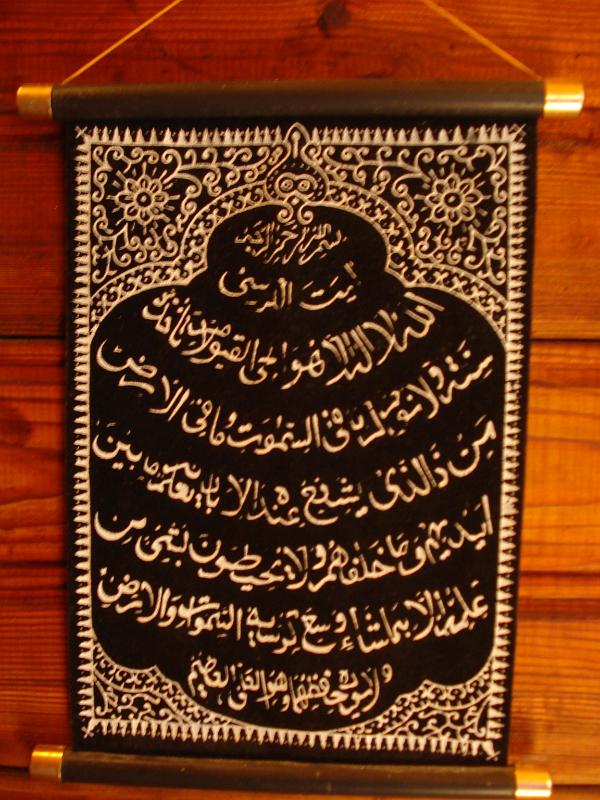 بسم الله الرحمن الرحيم
ايت الكرسي
الله لا اله الا هو الحي القيوم لا تأخذه
سنة ولا نوم له ما في السموت وما في الارض
من ذا الذى يشفع عنده الا باذنه يعلم ما بين
ايديهم وما خلفهم ولا يحيطون بشئ من
علمه الا بما شاء وسع كرسيه السموات والارض
ولا يوده حفظهما وهو العلى العظيم